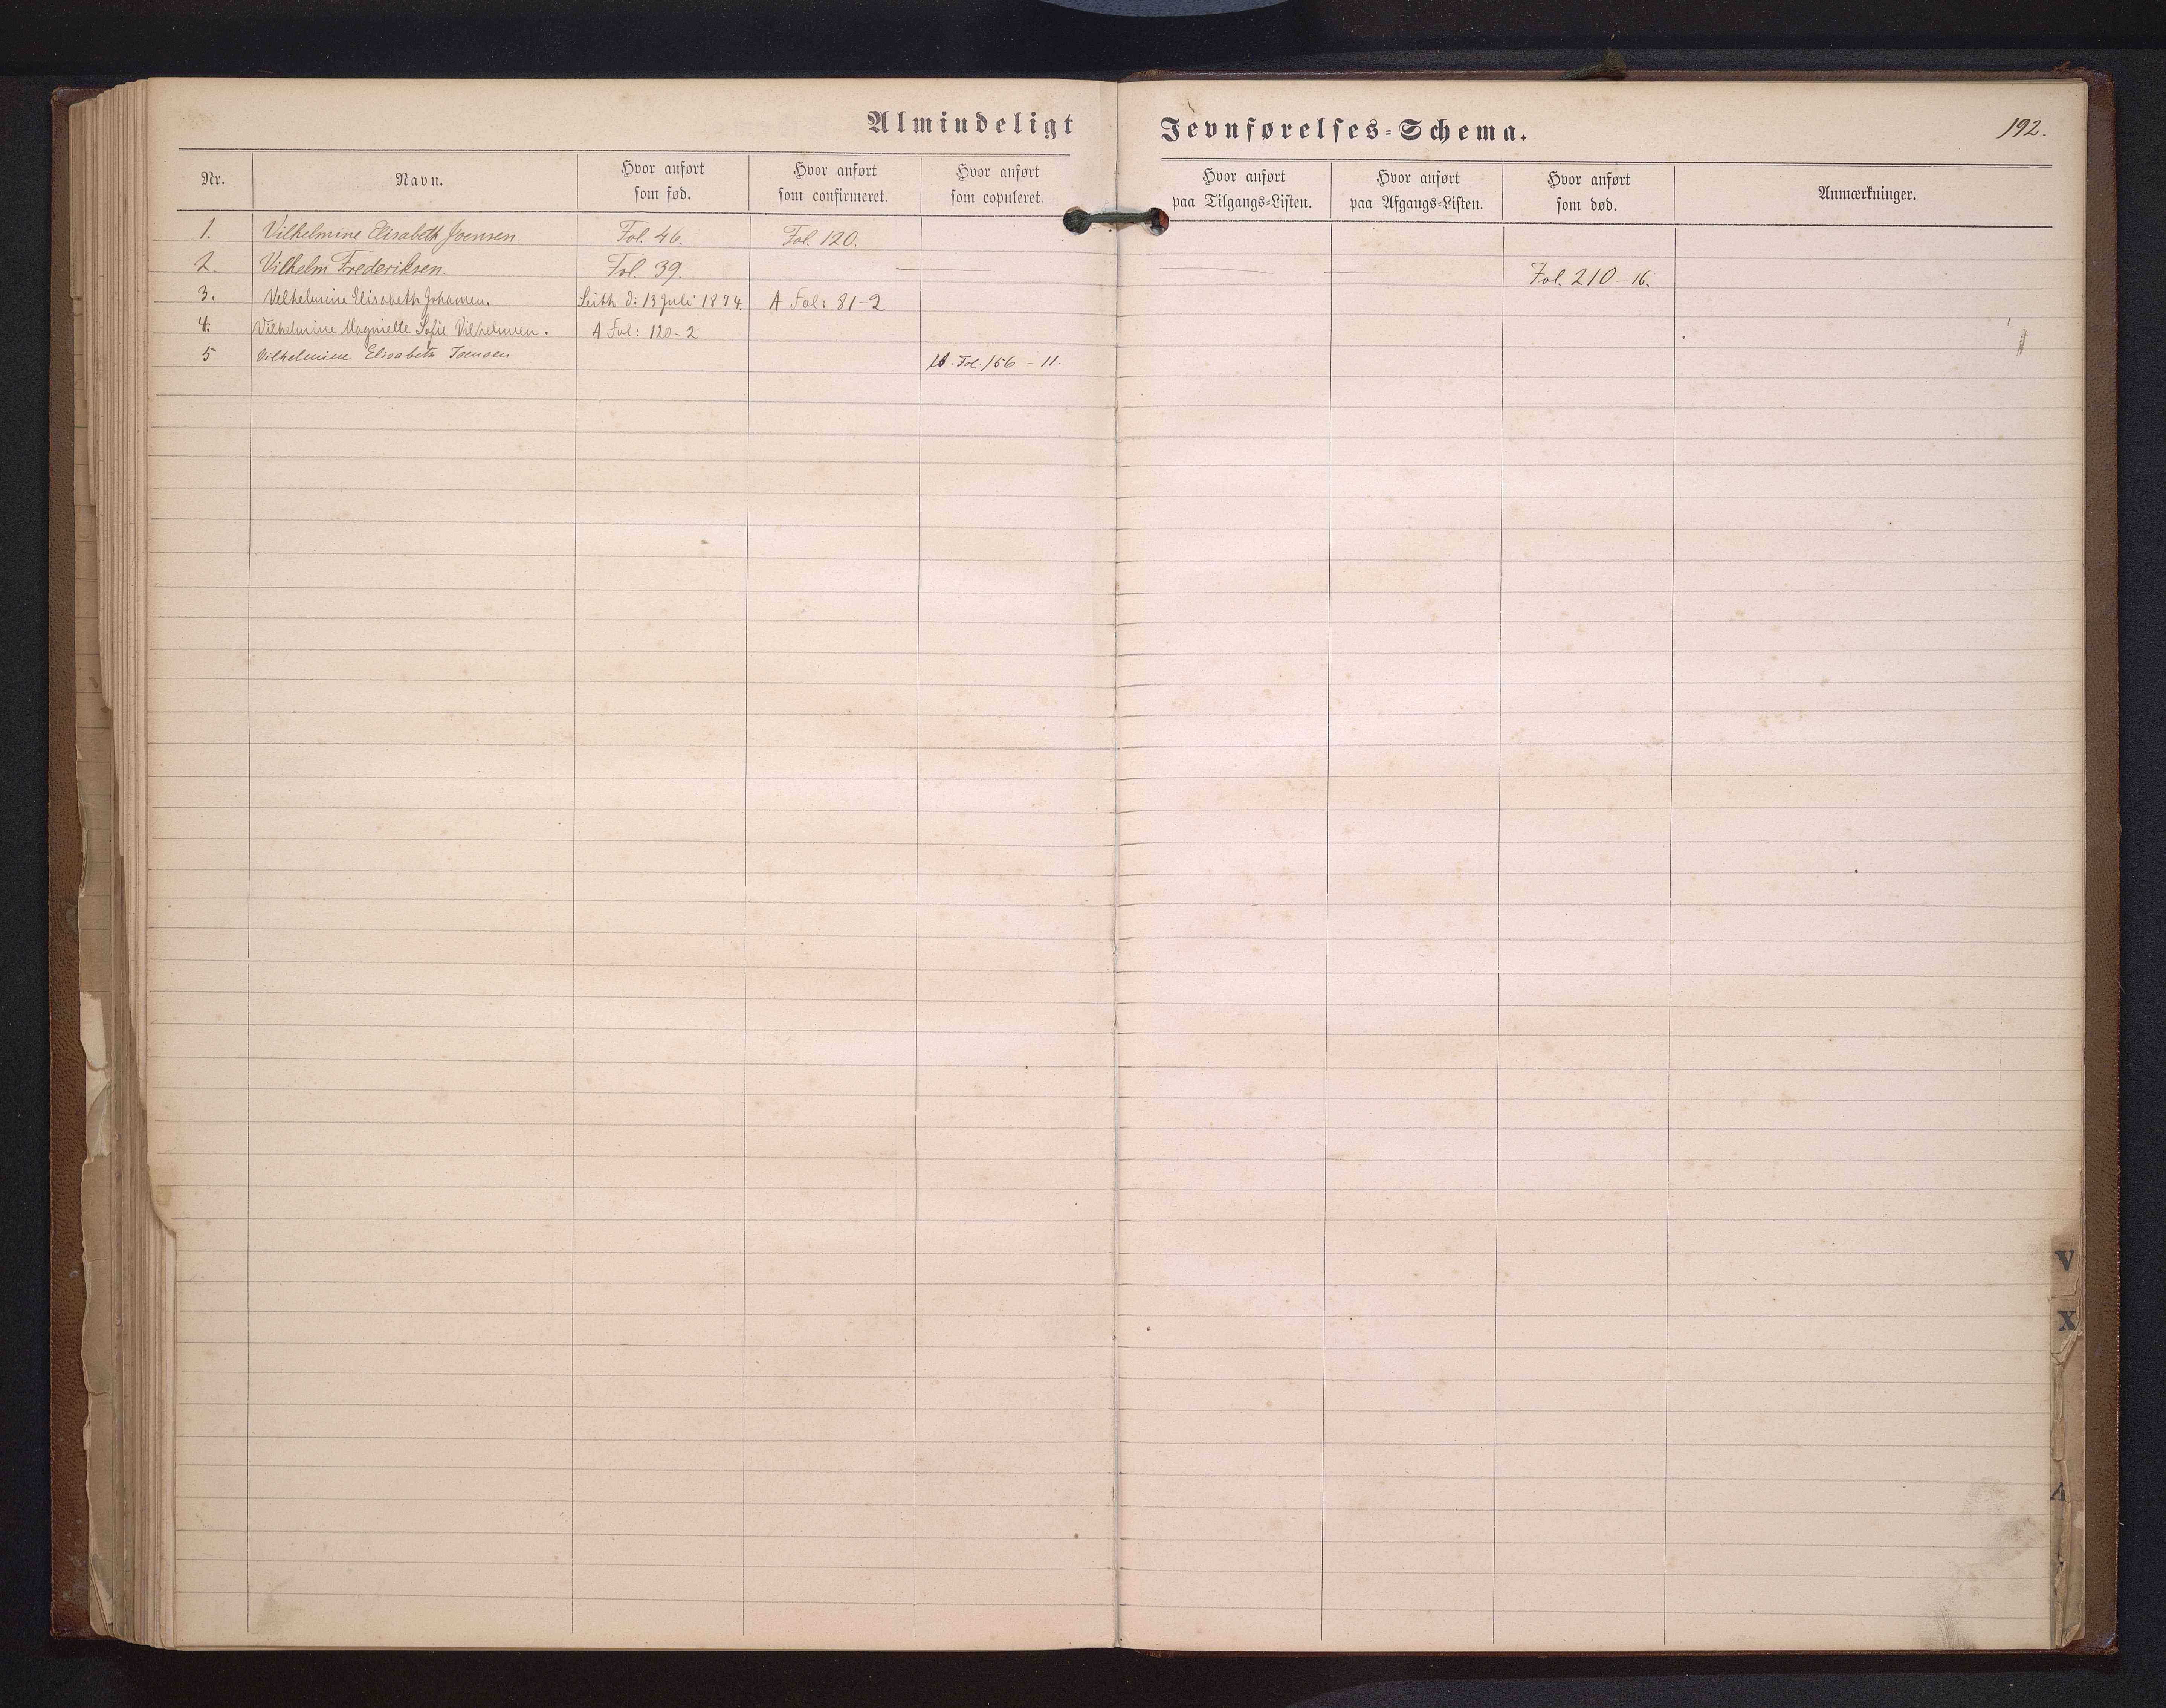 Almindeligt Jevnførelses-Schema. 192.
Nr. Navn. Hvor anført som fød. Hvor anført som confirmeret. Hvor anført som copuleret. Hvor anført paa Tilgangs-Listen. Hvor anført paa Afgangs-Listen. Hvor anført som død. Anmærkninger.
1. Vilhelmine Elisabeth Joensen. Fol. 46. Fol. 120.
2. Vilhelm Frederiksen. Fol. 39. — — — Fol. 210-16.
3. Vilhelmine Elisabeth Johansen. Leith d: 13 Juli 1874. A Fol: 81-2
4. Vilhelmine Magnielle Sofie Vilhelmsen. A Fol: 120-2
5 Vilhelmine Elisabeth Joensen Fol 156 - 11.
V
X